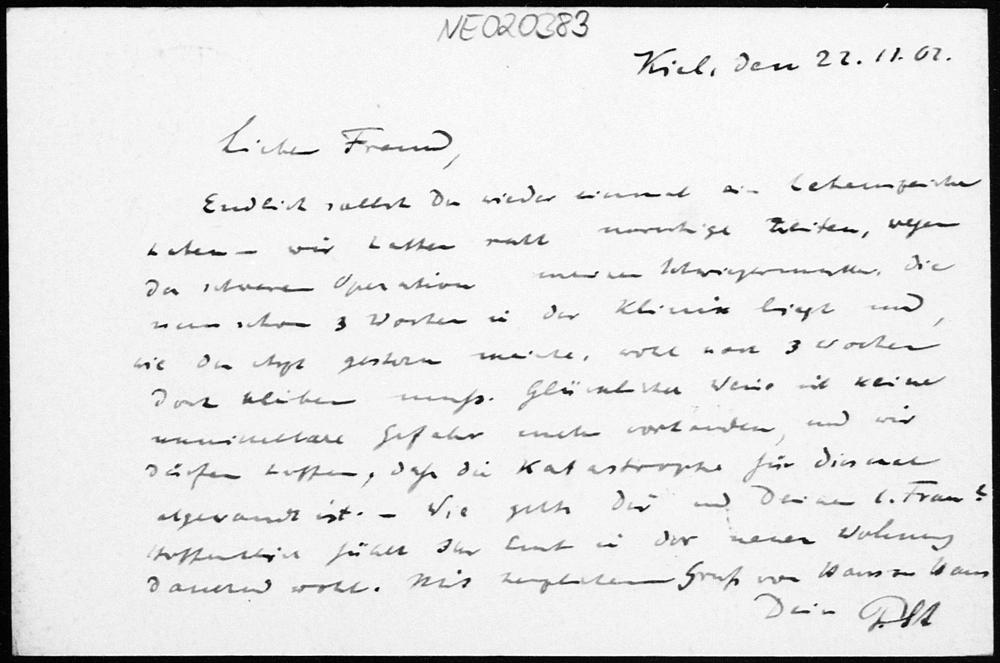 NE020383
Kiel, den 22.11.02.
Lieber Freund,
Endlich sollst Du wieder einmal ein Lebenszeichen
haben – wir hatten recht unruhige Zeiten, wegen
der schweren Operation meiner Schwiegermutter, die
nun schon 3 Wochen in der Klinik liegt und,
wie der Arzt gestern meinte, wohl noch 3 Wochen
dort bleiben muß. Glücklicher Weise ist keine
unmittelbare Gefahr mehr vorhanden, und wir
dürfen hoffen, daß die Katastrophe für diesmal
abgewandt ist. – Wie geht's Dir und Deiner l. Frau?
Hoffentlich fühlt Ihr Euch in der neuen Wohnung
dauernd wohl. Mit herzlichem Gruß von Haus zu Haus
Dein PSt